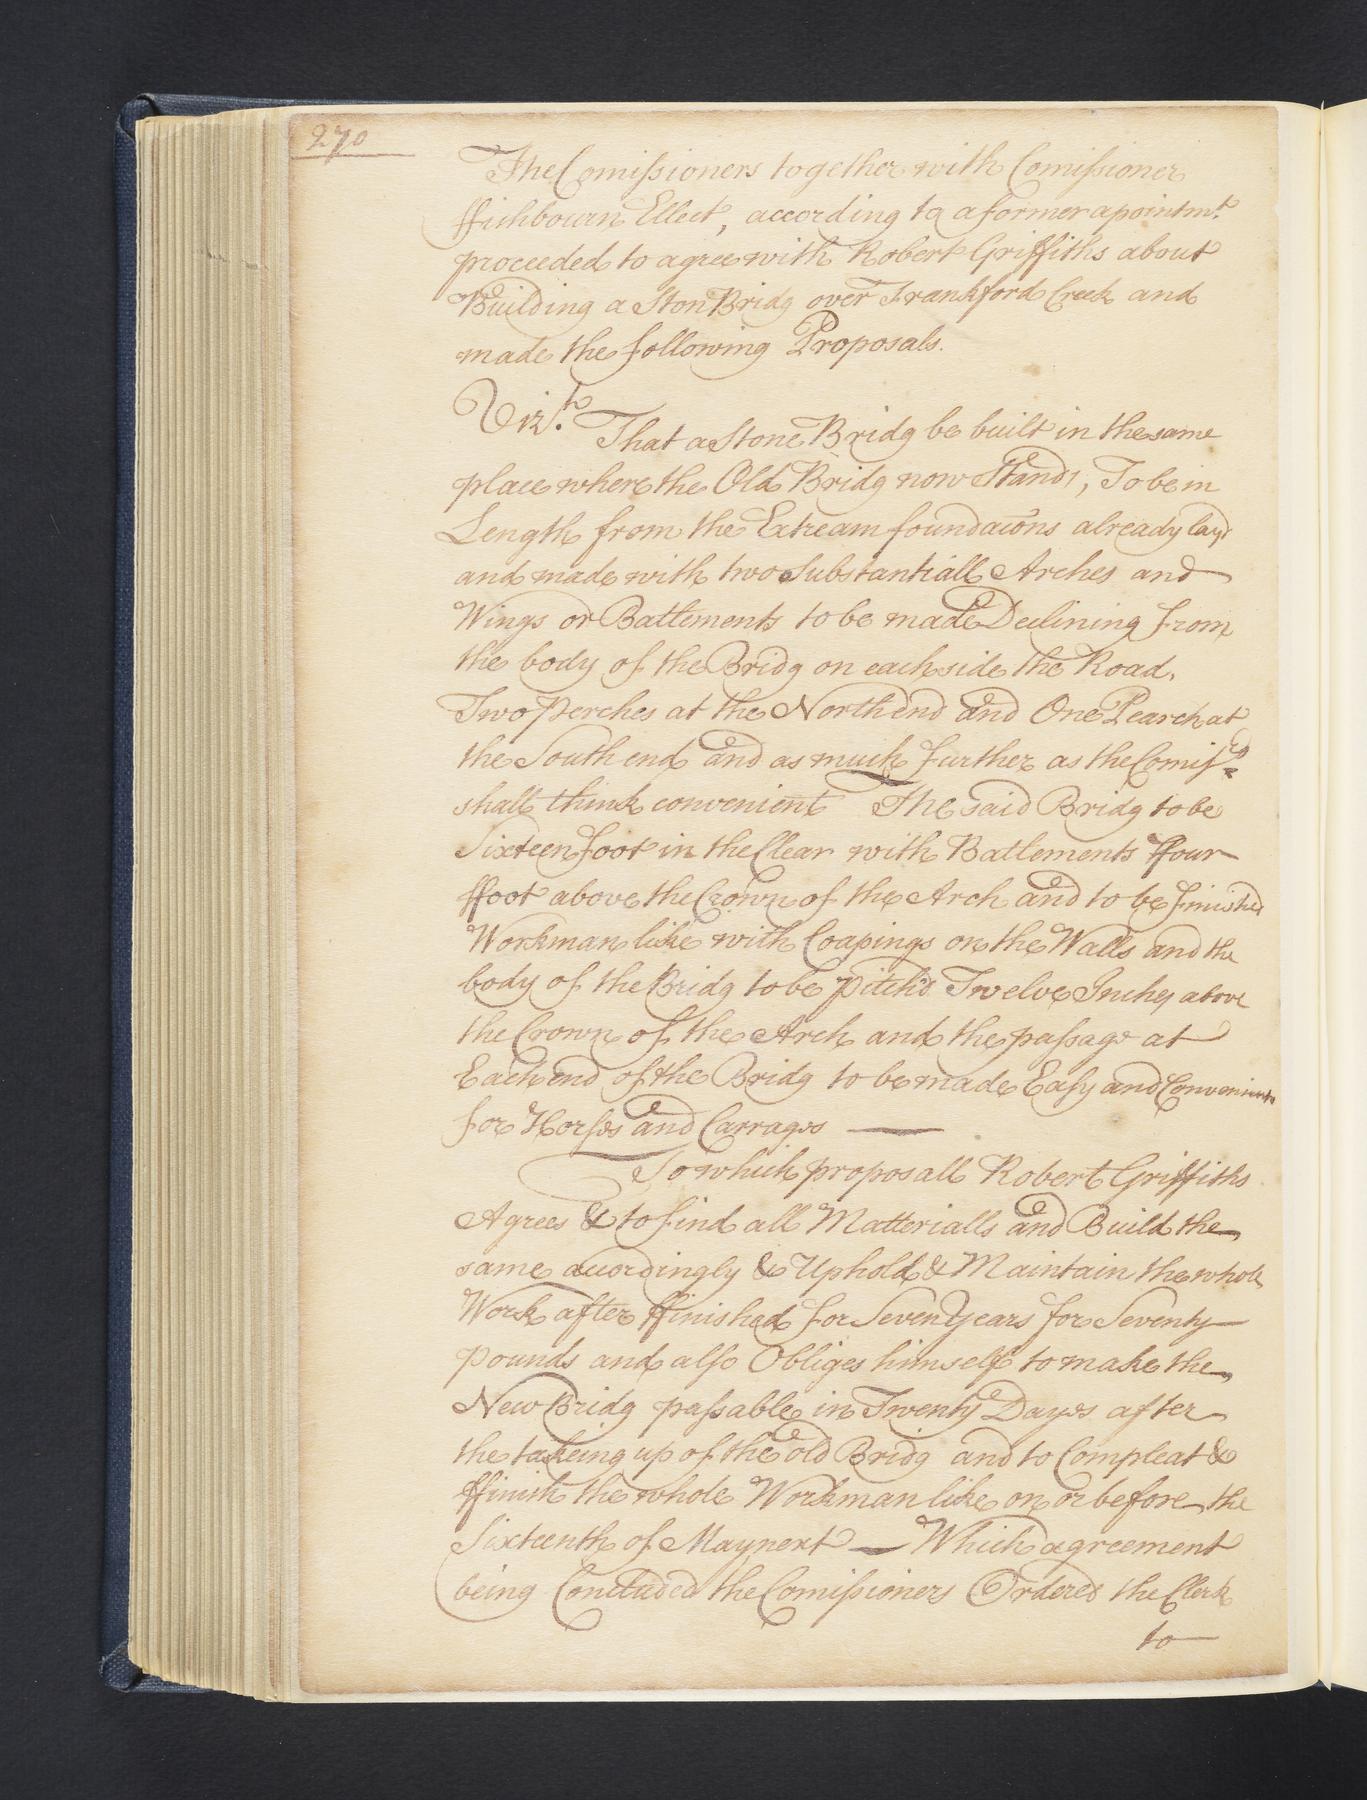 270
The Comissioners together with Comissioner
ffishbourn Ellect, according to a former apointmt.
proceeded to agree with Robert Griffiths about
Building a Ston Bridg over Frankford Creek and
made the following Proposals.
Vizt. That a Stone Bridg be built in the same
place where the Old Bridg now Stands, To be in
Length from the Extream foundacõns already layd
and made with two Substantiall Arches and
Wings or Batlements to be made Declining from
the body of the Bridg on each side the Road.
Two Perches at the North end and One Pearch at
the South end and as much further as the Comissrs
shall think convenient The said Bridg to be
Sixteen foot in the Clear with Batlements ffour
ffoot above the Crown of the Arch and to be finished
Workman like with Coapings on the Walls and the
body of the Bridg to be pitch'd Twelve Inches above
the Crown of the Arch and the passage at
Each end of the Bridg to be made Easy and Convenient
for Horses and Carrages
To which proposall Robert Griffiths
Agrees & to find all Matterialls and Build the
same accordingly & Uphold & Maintain the whole
Work after ffinished for Seven Years for Seventy
Pounds and also Obliges himself to make the
New Bridg passable in Twenty Dayes after
the takeing up of the old Bridg and to Compleat &
ffinish the whole Workman like on or before the
Sixteenth of May next — Which agreement
being Concluded the Comissioners Ordered the Clerk
to